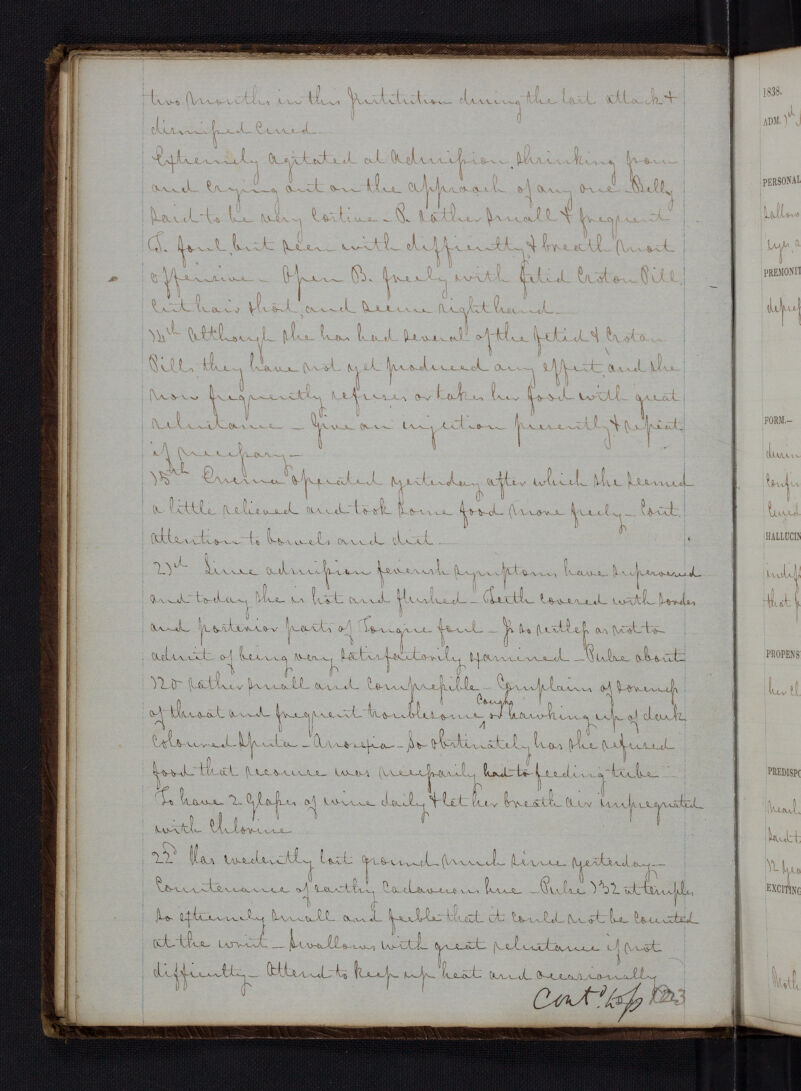 two Months in this Institution during the last attack &
dismissed Cured
Extremely agitated at Admission, shrinking from
and Crying out on the approach of any one - Belly
Said to be very Costive - P. rather Small & frequent
T. foul, but seen with difficulty, & breath most
offensive - Open B. freely with fetid Croton Pill,
Cut hair short, and secure right hand
14th Although she has had several of the fetid & Croton
Pills they have not yet produced any effect, and she
now frequently refuses or takes her food with great
reluctance - Give an injection presently & repeat
if necessary -
15th Enema operated yesterday after which she seemed
a little relieved and took some food more freely - Cont.
attention to bowels and diet
21st Since admission feverish symptoms have supervened
and today she is hot and flushed - Teeth covered with Sordes
and posterior parts of Tongue foul - Is so restless as not to
admit of being very satisfactorily examined - Pulse about
120 rather small and Compressible - Complains of soreness
of throat and frequent troublesome Cough or hawking up of dark
Coloured Sputa - Anorexia - So obstinately has she refused
food that recourse was necessarily had to feeding tube
To have 2 Glasses of wine daily & let her breath air impregnated
with Chlorine
22d Has evedently lost ground much since yesterday -
Countenance of earthy Cadaverous hue - Pulse 132 at temples
so extremely small and feeble that it could not be Counted
at the wrist - Swallows with great reluctance if not
difficulty - Attend to keep up heat and occasionally
Contd. 
1838.
ADM.
PERSONAL
Sallow
PREMONIT
FORM.-
HALLUCIN
that
PROPENS
her
PREDISPO
EXCITING